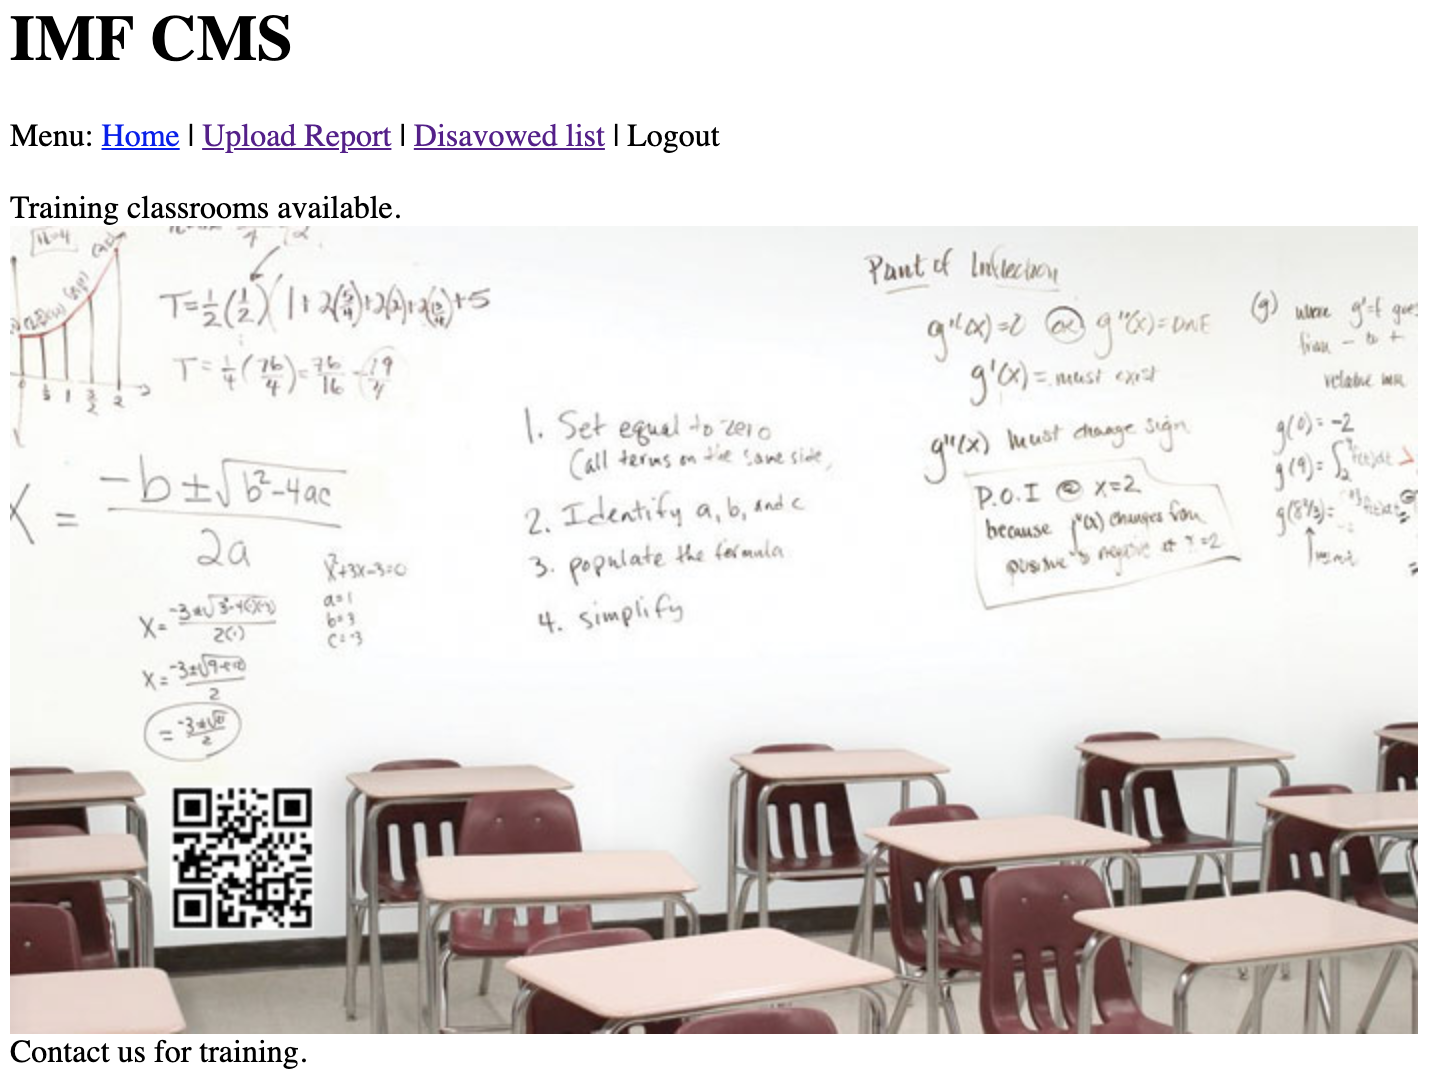 IMF CMS
Menu: Home | Upload Report | Disavowed list | Logout
Training classrooms available.
n=4
T=1/2(1/2)(1+2(5/4)+2(2)+2(13/4)+5
T=1/4(76/4)=76/16=19/4
X = -b±√b²-4ac
2a
x²+3x-3=0
a=1
b=3
c=-3
X=
2
1. Set equal to zero
(all terms on the same side,
2. Identify a, b, and c
3. populate the formula
4. simplify
Point of Inflection
g''(x)=0 or g''(x)=DNE
g'(x)= must exist
g''(x) must change sign
P.O.I @ x=2
because changes from
positive to negative at x=2
(g) where g'=f goes
from - to +
relative min
g(0)=-2
g(9)=
Contact us for training.